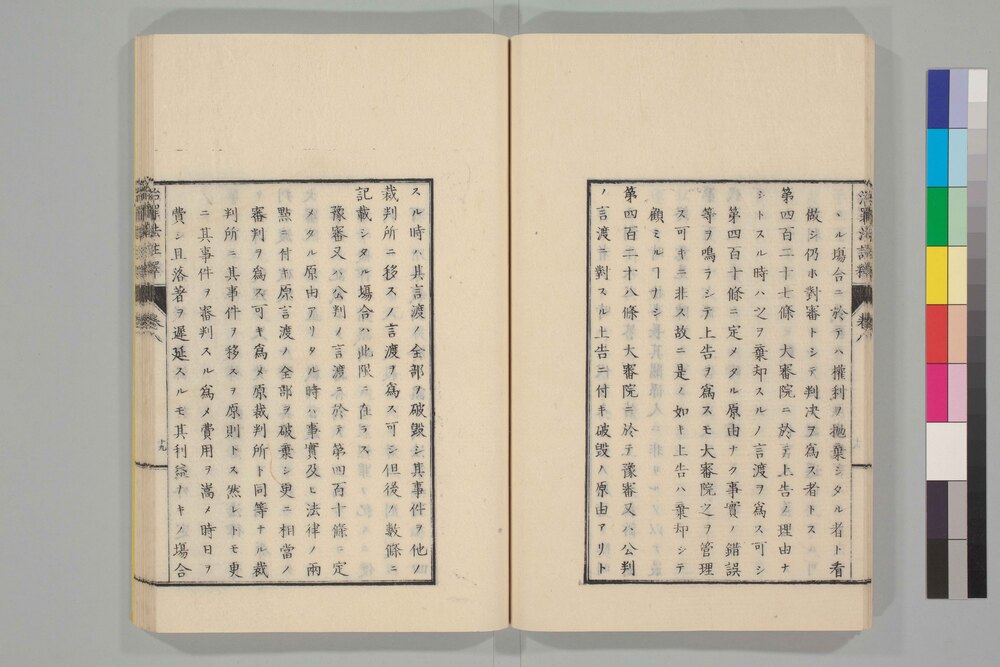 ヽル塲合ニ於テハ權利ヲ抛棄シタル者ト看
做シ仍ホ對審トシテ判决ヲ爲ス者トス
第四百二十七條　大審院ニ於テ上告ノ理由ナ
シトスル時ハ之ヲ棄却スルノ言渡ヲ爲ス可シ
第四百十條ニ定メタル原由ナク事實ノ錯誤
等ヲ鳴ラシテ上告ヲ爲スモ大審院之ヲ管理
ス可キニ非ス故ニ是ノ如キ上告ハ棄却シテ
顧ミルヿナシ
第四百二十八條　大審院ニ於テ豫審又ハ公判
ノ言渡ニ對スル上告ニ付キ破毀ノ原由アリト
スル時ハ其言渡ノ全部ヲ破毀シ其事件ヲ他ノ
裁判所ニ移スノ言渡ヲ爲ス可シ但後ノ數條ニ
記載シタル塲合ハ此限ニ在ラス
豫審又ハ公判ノ言渡ニ於テ第四百十條ニ定
メタル原由アリタル時ハ事實及ヒ法律ノ兩
㸃ニ付キ原言渡ノ全部ヲ破棄シ更ニ相當ノ
審判ヲ爲ス可キ爲メ原裁判所ト同等ナル裁
判所ニ其事件ヲ移スヲ原則トス然レトモ更
ニ其事件ヲ審判スル爲メ費用ヲ嵩メ時日ヲ
費シ且落著ヲ遲延スルモ其利益ナキノ塲合
治罪法註釋　卷八
十九